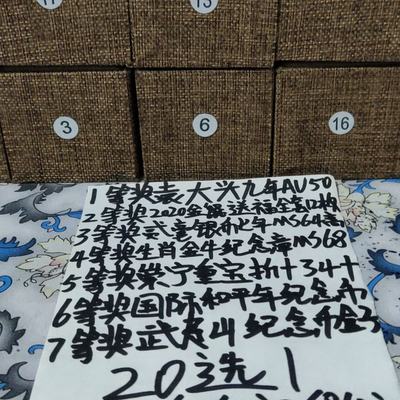 11
13
3
6
16
1等奖袁大头九年AU50
2等奖2020金鼠送福全套12枚
3等奖贰壹银币七年MS64
4等奖生肖金牛纪念章MS68
5等奖崇宁重宝折十34
6等奖国际和平年纪念币
7等奖武夷山纪念币
20选1